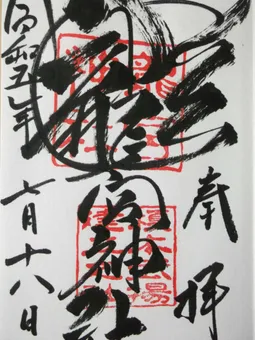 奉拝
龍宮神社
令和五年
七月十八日